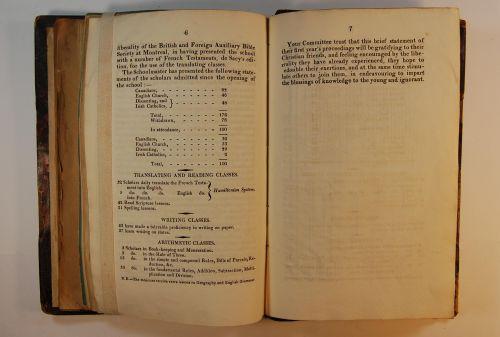 6
liberality of the British and Foreign Auxiliary Bible
Society at Montreal, in having presented the school
with a number of French Testaments, de Sacy's edi-
tion, for the use of the translating classes.
The Schoolmaster has presented the following state-
ments of the scholars admitted since the opening of
the school :—
Canadians,
English Church,
Dissenting, and
Irish Catholics,
Total,
Withdrawn,
In attendance, 100
Canadians,
English Church,
Dissenting,
Irish Catholics,
Total, 100
TRANSLATING AND READING CLASSES.
Scholars daily translate the French Testa-
ment into English,
do. do. do. English do.
into French.
Hamiltonian System.
Read Scripture lessons.
Spelling lessons.
WRITING CLASSES.
have made a tolerable proficiency in writing on paper.
learn writing on slates.
ARITHMETIC CLASSES.
Scholars in Book-keeping and Mensuration.
do. in the Rule of Three.
do. in the simple and compound Rules, Bills of Parcels, Re-
duction, &c.
do. in the fundamental Rules, Addition, Subtraction, Multi-
plication and Division.
N.B.—The scholars to Geography and English Grammar
7
Your Committee trust that this brief statement of
their first year's proceedings will be gratifying to their
Christian friends, and feeling encouraged by the libe-
rality they have already experienced, they hope to
redouble their exertions, and at the same time stimu-
late others to join them, in endeavouring to impart
the blessings of knowledge to the young and ignorant.